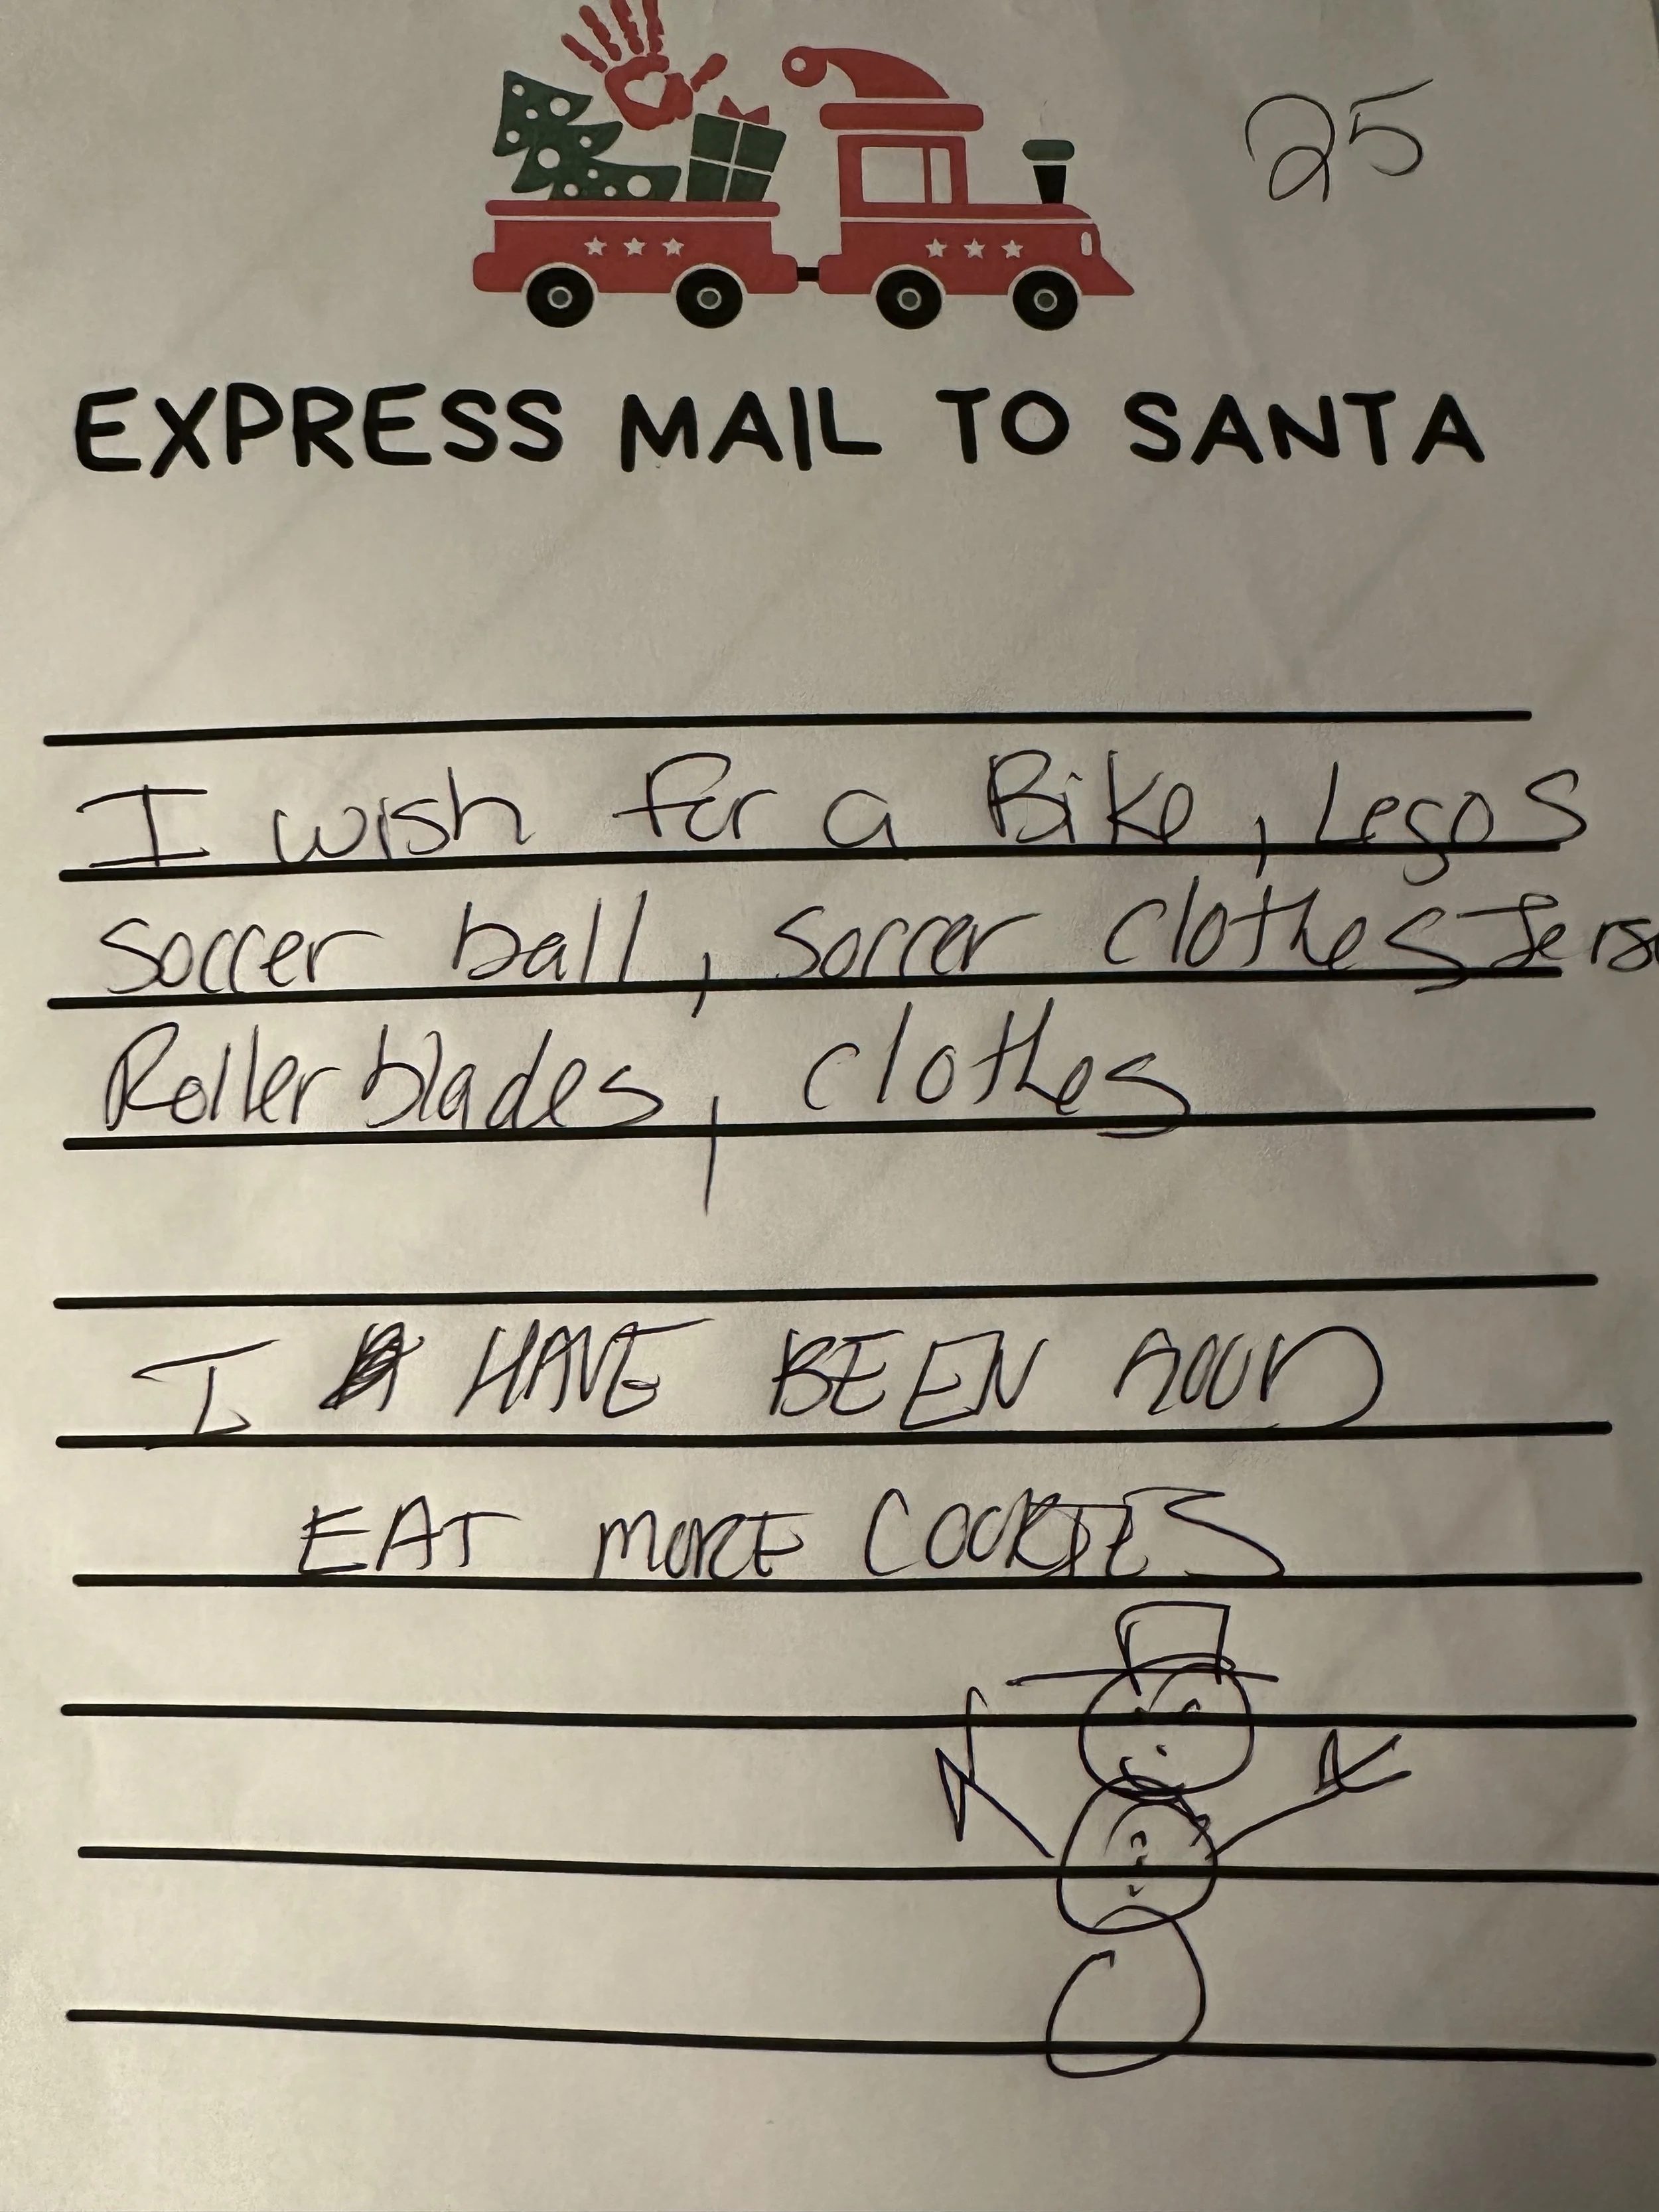 25
EXPRESS MAIL TO SANTA
I wish for a Bike, Legos
Soccer ball, Soccer clothes Jerse
Rollerblades, clothes
I HAVE BEEN GOOD
EAT MORE COOKIES